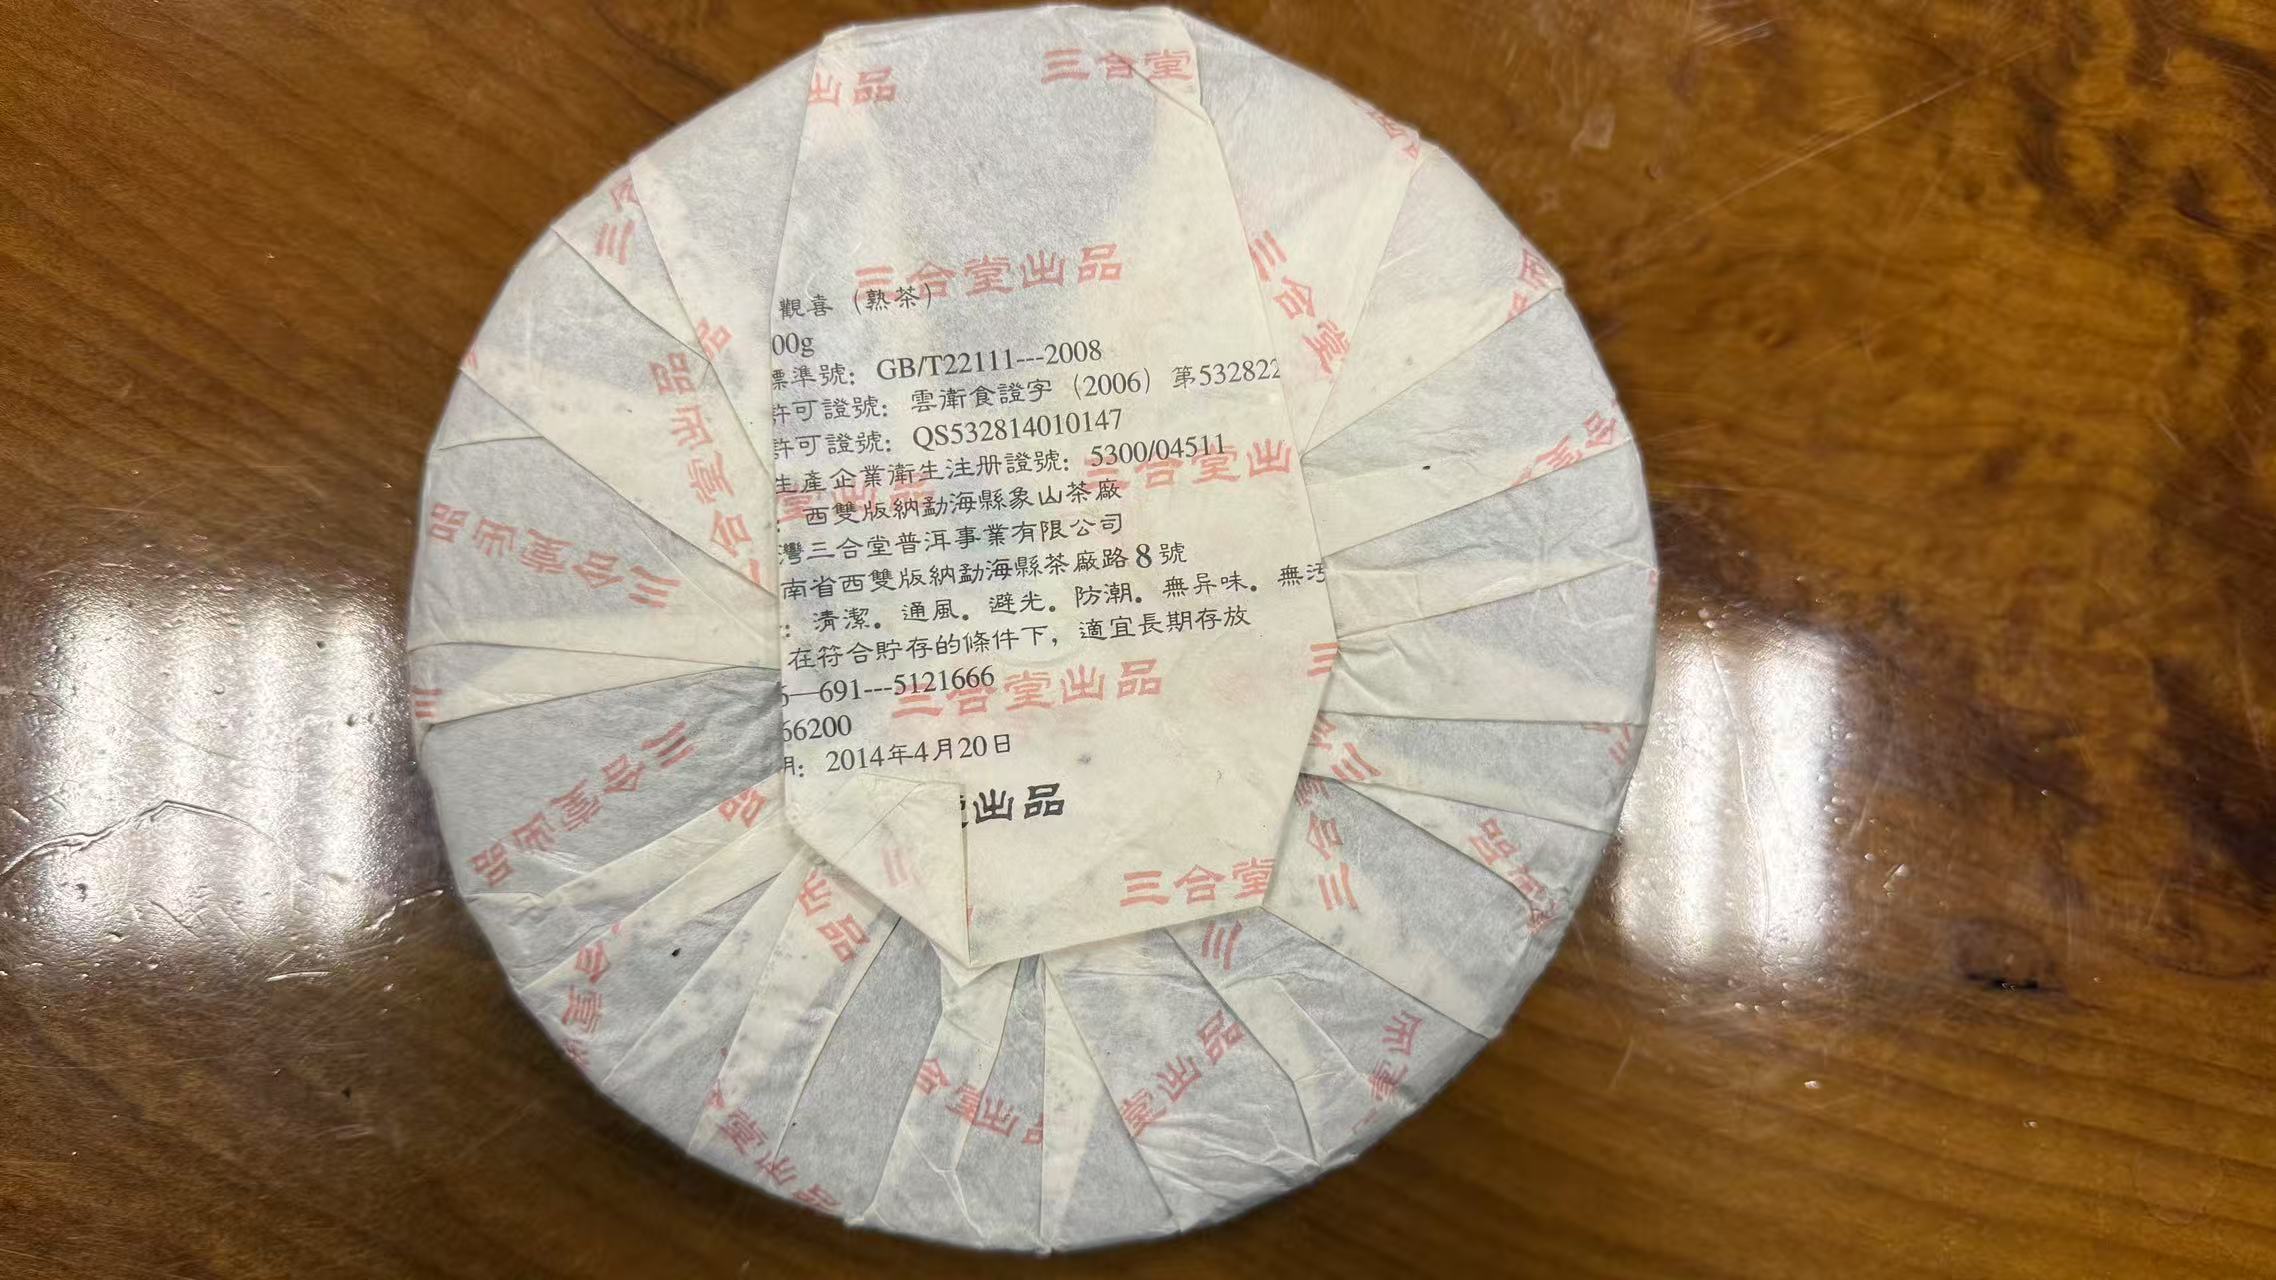 出品
三合堂
三合堂出品
觀喜（熟茶）
00g
標準號：GB/T22111---2008
許可證號：雲衛食證字（2006）第532822
許可證號：QS532814010147
生產企業衛生注册證號：5300/04511
三合堂出
：西雙版納勐海縣象山茶廠
灣三合堂普洱事業有限公司
南省西雙版納勐海縣茶廠路8號
：清潔。通風。避光。防潮。無异味。無污
在符合貯存的條件下，適宜長期存放
6—691---5121666
三合堂出品
66200
期：2014年4月20日
出品
三合堂
三合堂
三合堂出品
三合堂出品
三合堂出品